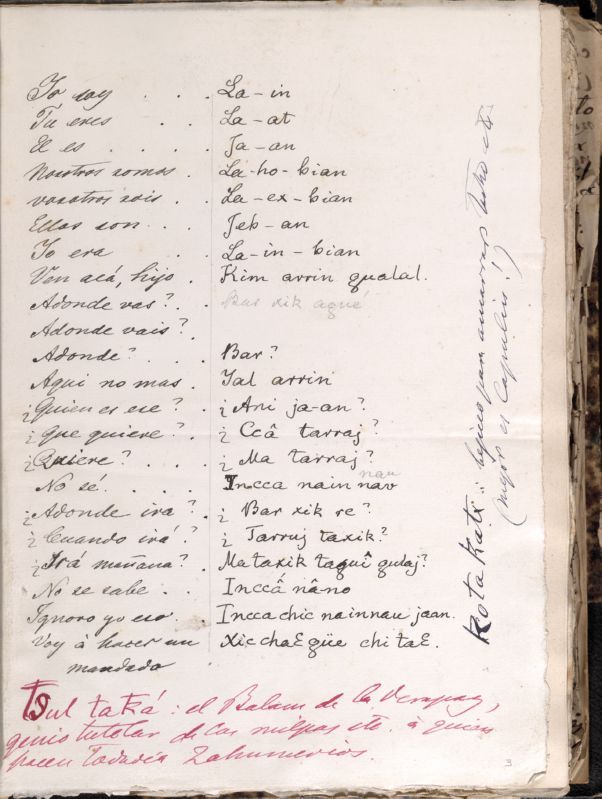 Yo soy . . . La-in
Tu eres . . . La-at
El es . . . . Ja-an
Nosotros somos . La-ho-bian
vosotros sois . La-ex-bian
Ellos son . . Jeb-an
Yo era . . La-in-bian
Ven acá, hijo . Kim arrin qualal.
Adonde vas? . Bar xik agué
Adonde vais? .
Adonde? . . . Bar?
Aqui no mas . Yal arrin
¿Quien es ese? . ¿Ani ja-an?
¿Que quiere? . ¿Ccâ tarraj?
¿Quiere? . . . ¿Ma tarraj?
nau
No sé . . . . Incca nain nav
¿Adonde ira? . ¿Bar xik re?
¿Cuando irá? . ¿Jarruj taxik?
¿Irá mañana? . Ma taxik taquî gulaj?
No se sabe . . Inccâ nâno
Ignoro yo eso . Incca chic nainnau jaan.
Voy à hacer un Xic chaƐ güe chi taƐ.
mandado
Tsul taká: el Balam de la Verapaz,
genio tutelar de las milpas etc. à quien
hacen todavia Zahumerios.
Kotakatz: bejuco para amarrar
(mejor es Capulin!)
3